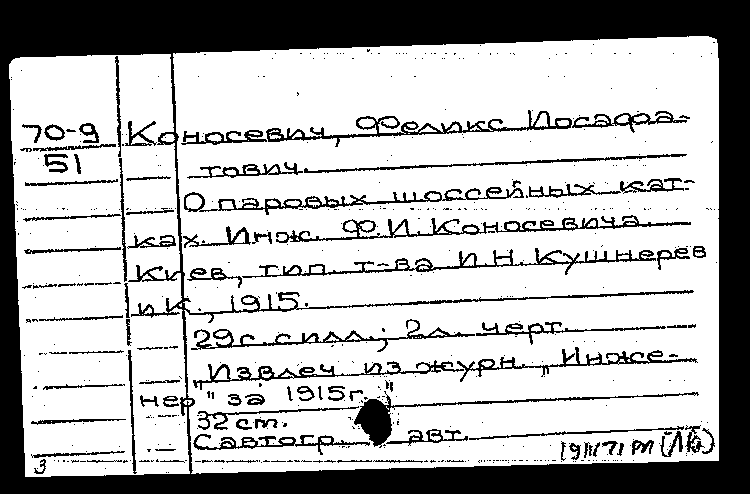 70-9 Коносевич, Феликс Иосафа-
51 тович.
О паровых шоссейных кат-
ках. Инж. Ф.И. Коносевича.
Киев, тип. т-ва И.Н. Кушнерев
и К., 1915.
29 с. с илл.; 2 л. черт.
"Извлеч из журн. "Инже-
нер" за 1915 г."
32 cm.
С автогр. авт.
3